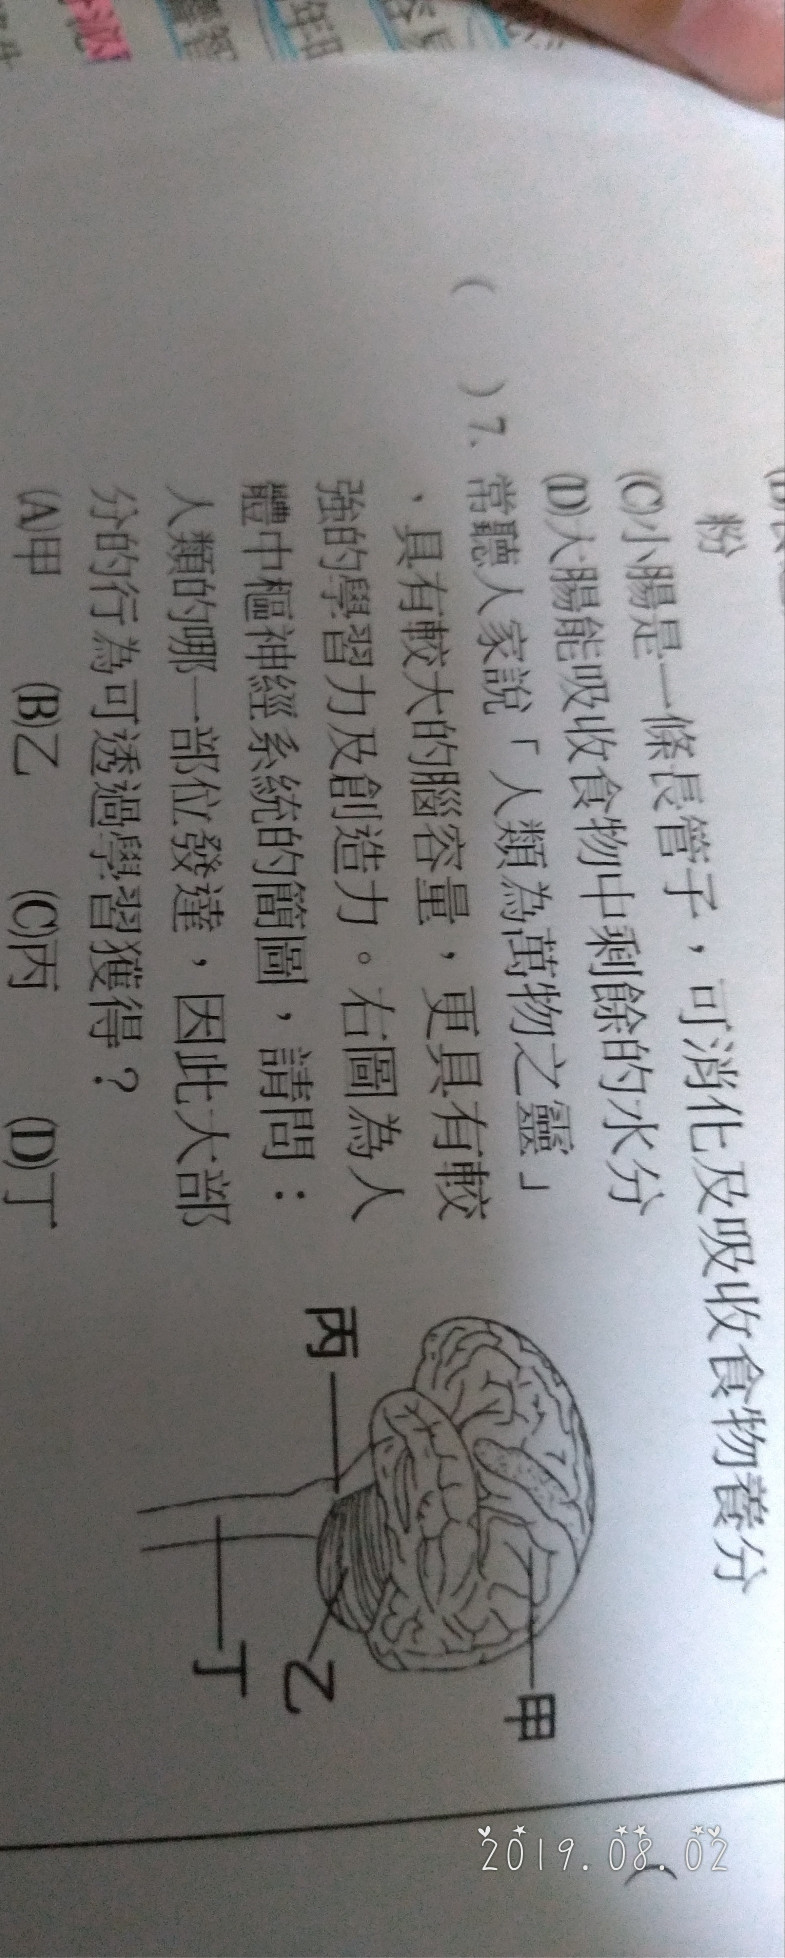 粉
(C)小腸是一條長管子，可消化及吸收食物養分
(D)大腸能吸收食物中剩餘的水分
(　)7. 常聽人家說「人類為萬物之靈」
，具有較大的腦容量，更具有較
強的學習力及創造力。右圖為人
體中樞神經系統的簡圖，請問：
人類的哪一部位發達，因此大部
分的行為可透過學習獲得？
(A)甲 (B)乙 (C)丙 (D)丁
甲
丙
乙
丁
2019.08.02